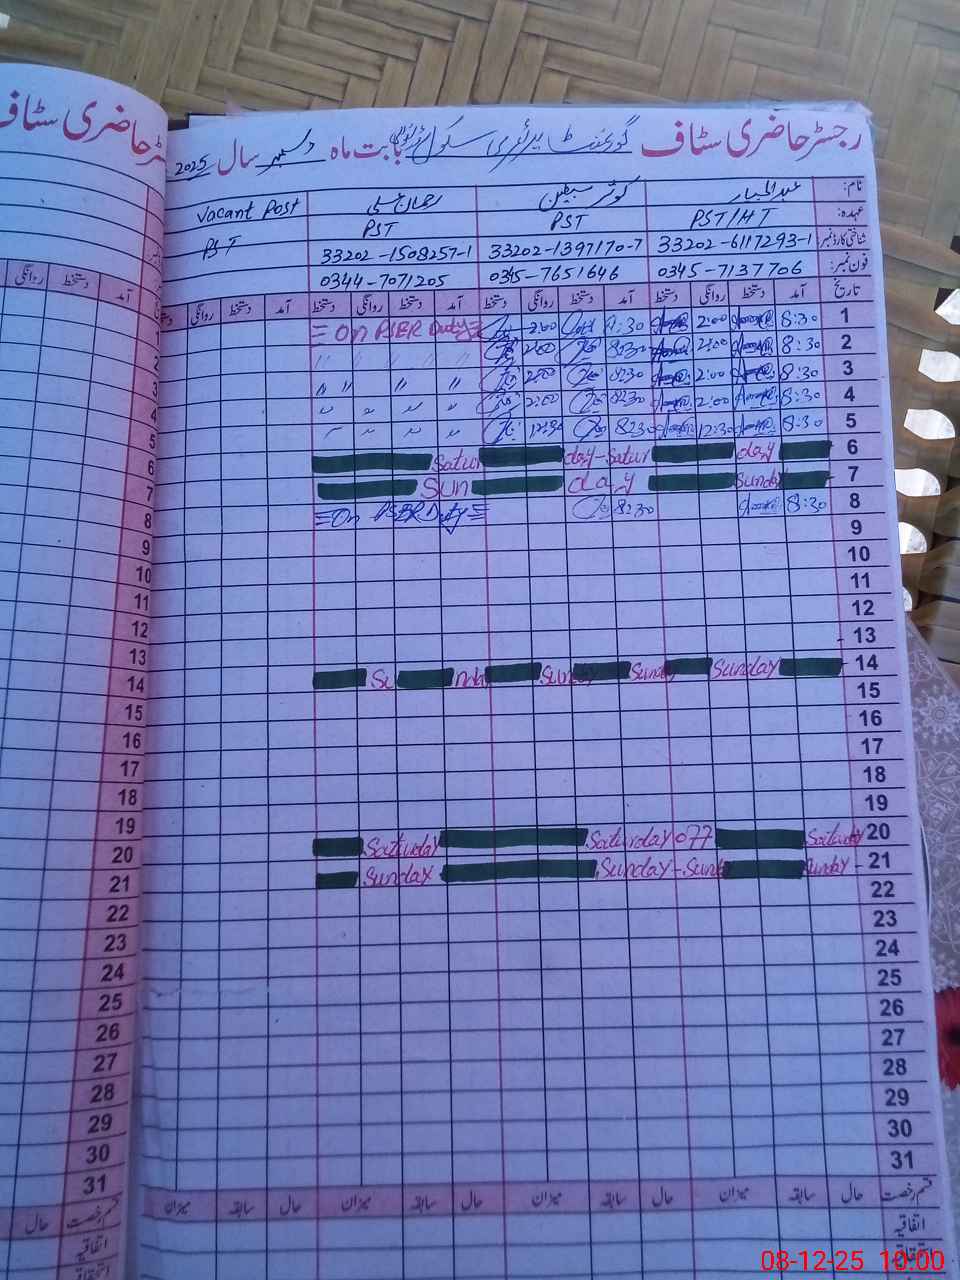 رجسٹر حاضری سٹاف گورنمنٹ پرائمری سکول بابت ماہ دسمبر سال 2025
نام: عبدالجبار کوثر سبطین Vacant Post
عہدہ: PST/HT PST PST PST
شناختی کارڈ نمبر: 33202-6117293-1 33202-1397170-7 33202-1508257-1
فون نمبر: 0345-7137706 0345-7651646 0344-7071205
تاریخ آمد دستخط روانگی دستخط آمد دستخط روانگی دستخط آمد دستخط روانگی دستخط آمد دستخط روانگی
1 8:30 2:00 8:30 2:00 On PSER Duty
2 8:30 2:00 8:30 2:00 " " " "
3 8:30 2:00 8:30 2:00 " " " "
4 8:30 2:00 8:30 2:00 " " " "
5 8:30 12:30 8:30 12:30 " " " "
6 Satur day-Satur day
7 Sun day Sunday
8 8:30 8:30 On PSER Duty
9
10
11
12
13
14 Su nda Sunday Sunday Sunday
15
16
17
18
19
20 Saturday Saturday Saturday
21 Sunday Sunday-Sund Sunday
22
23
24
25
26
27
28
29
30
31
قسم رخصت حال سابقہ میزان حال سابقہ میزان حال سابقہ میزان حال سابقہ میزان
اتفاقیہ
رجسٹر حاضری سٹاف
آمد دستخط روانگی
1
2
3
4
5
6
7
8
9
10
11
12
13
14
15
16
17
18
19
20
21
22
23
24
25
26
27
28
29
30
31
قسم رخصت حال
اتفاقیہ
08-12-25 10:00